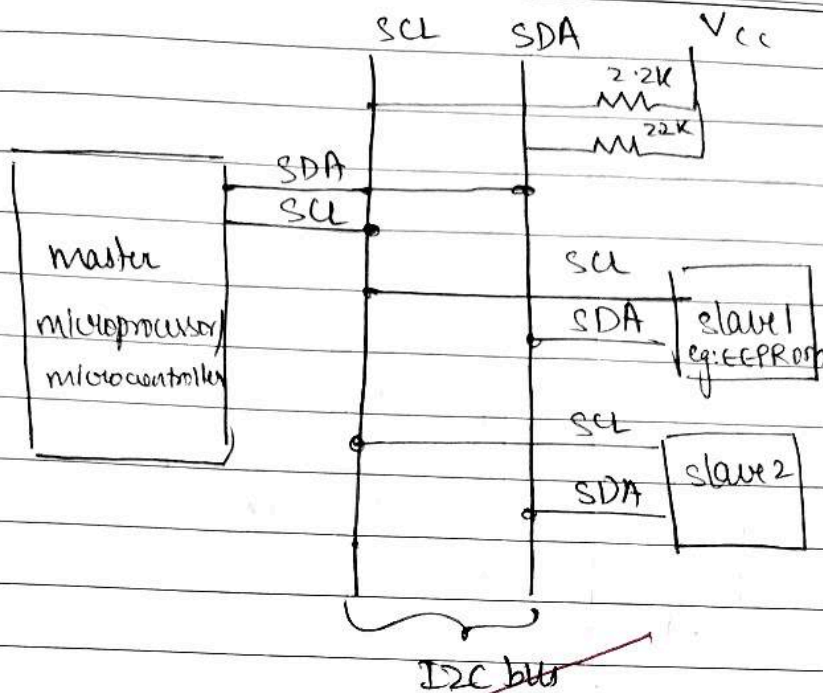 SCL SDA Vcc
2.2K
22K
SDA
SCL
master
microprocessor/
microcontroller
SCL
SDA
slave1
eg:EEPROM
SCL
SDA
slave2
I2C bus